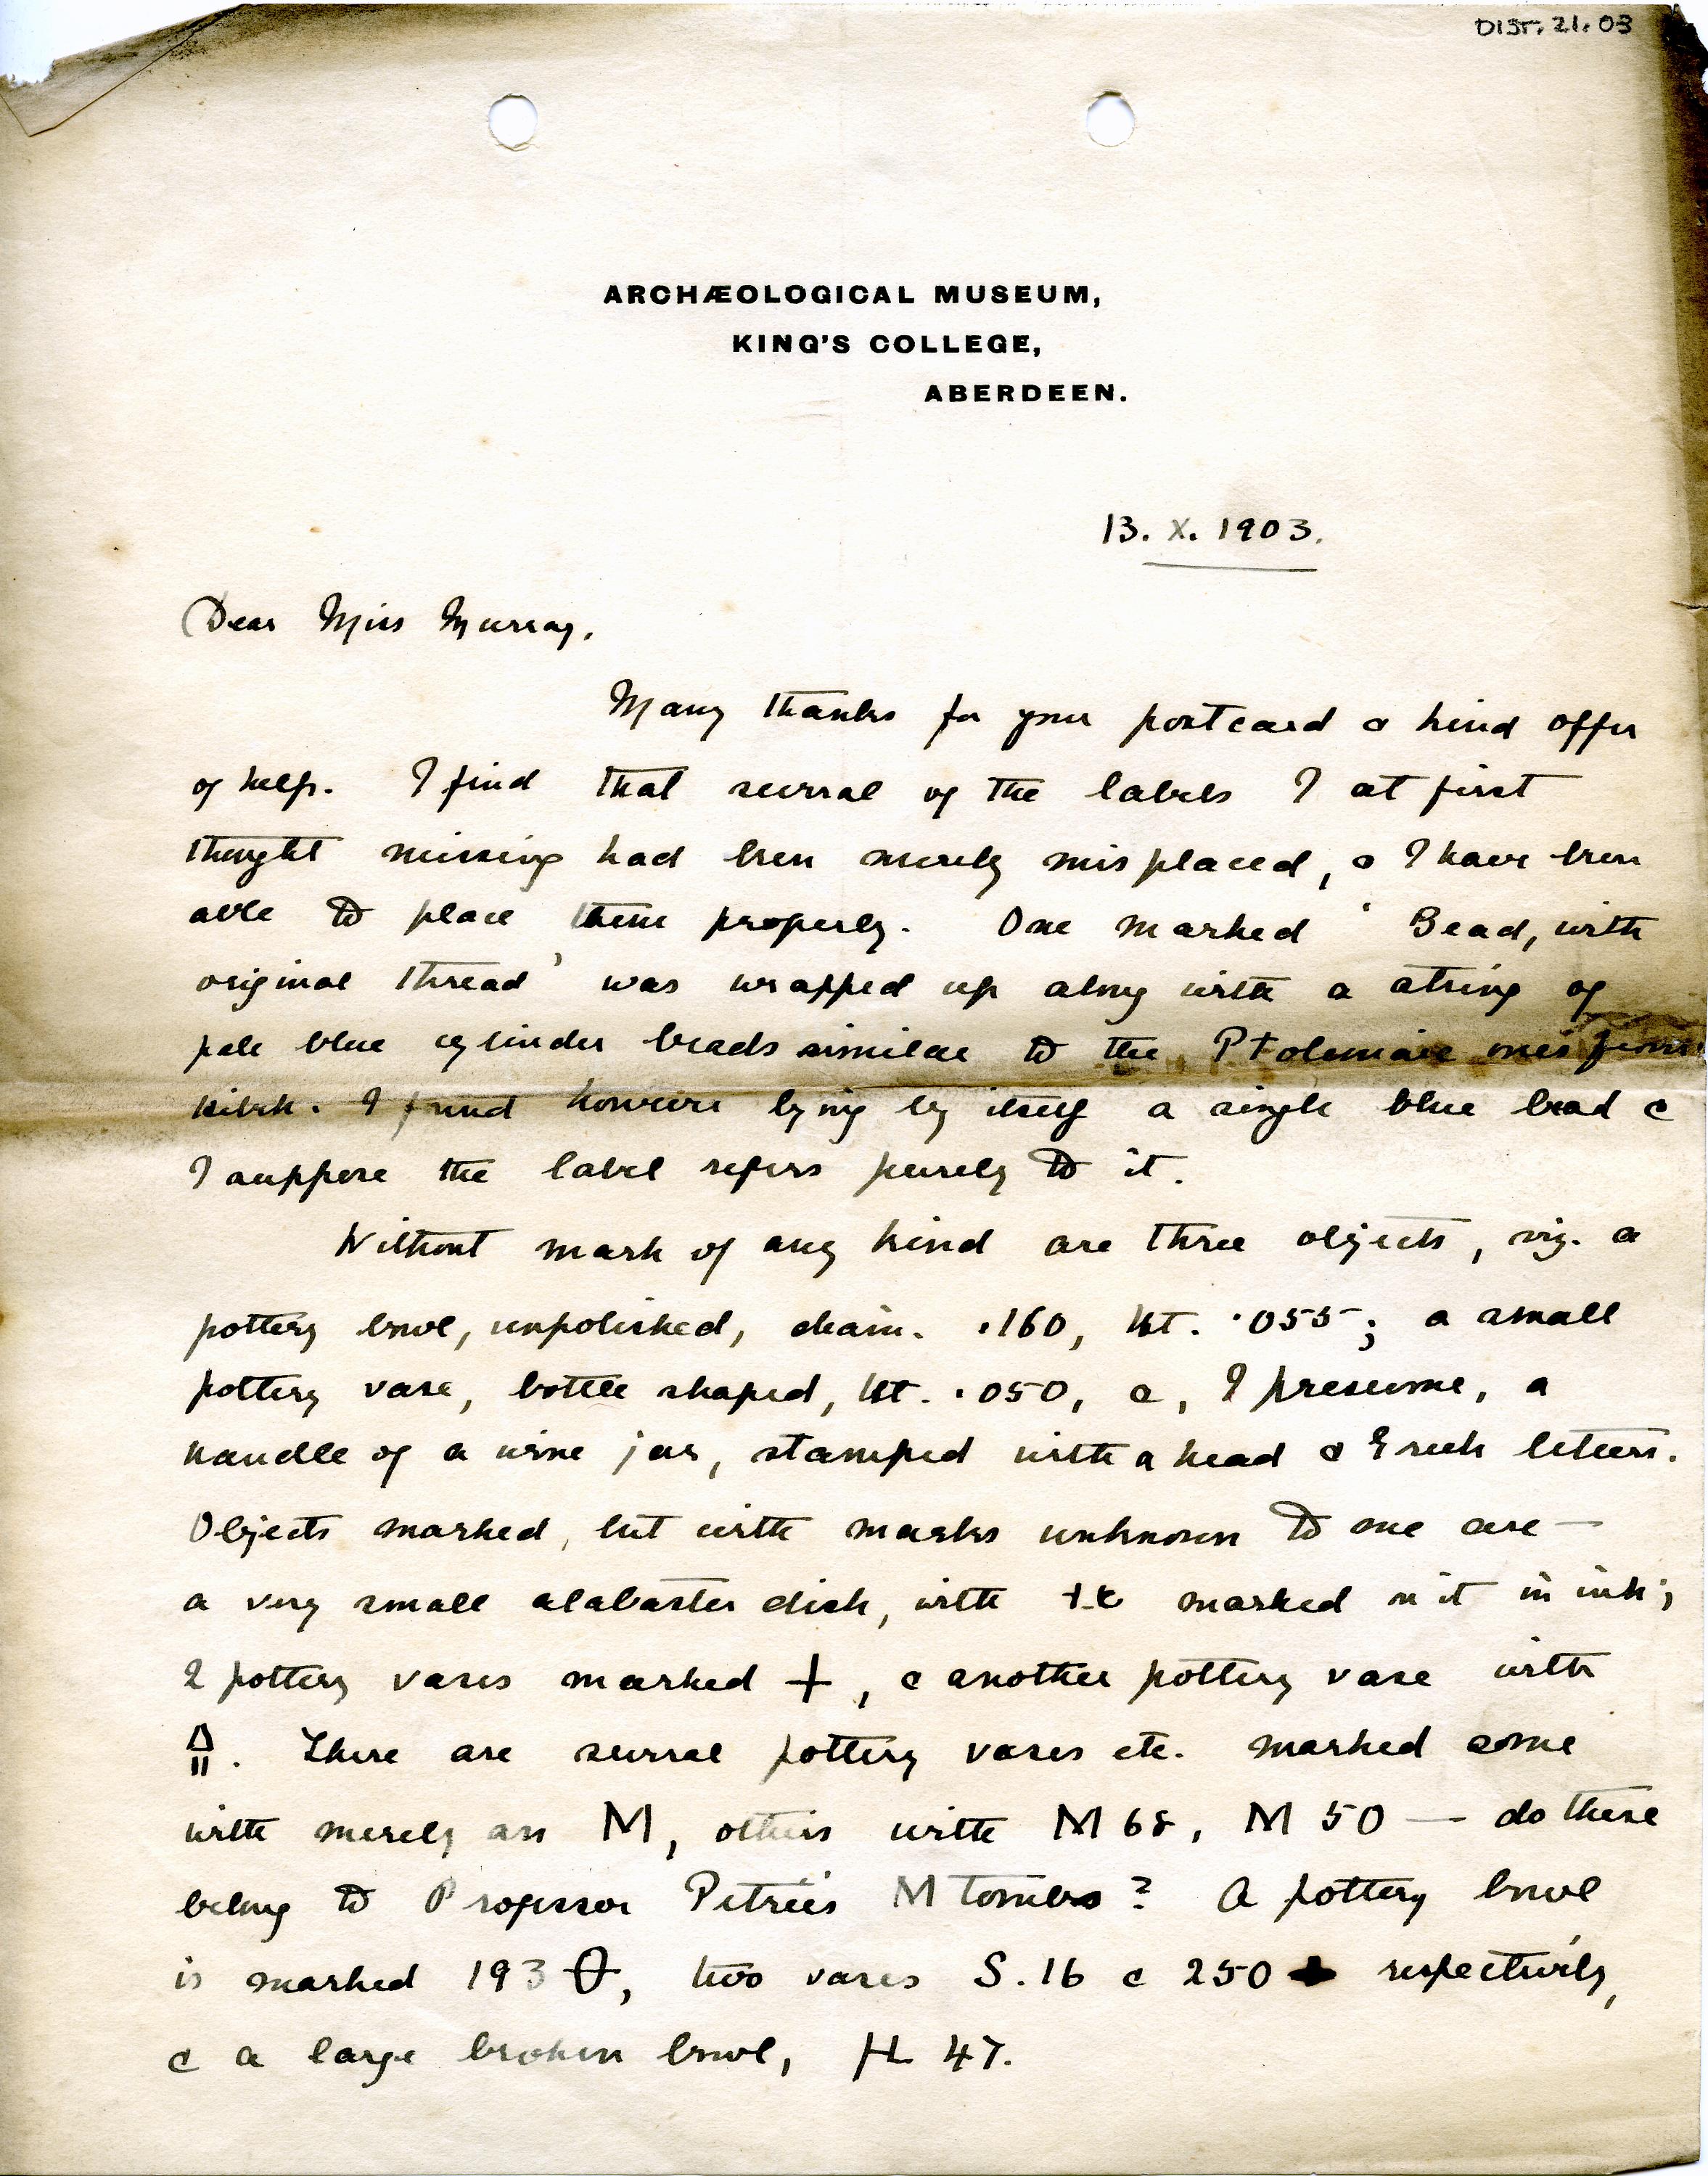 DIST. 21. 03
ARCHÆOLOGICAL MUSEUM,
KING'S COLLEGE,
ABERDEEN.
13. X. 1903.
Dear Miss Murray,
Many thanks for your postcard & kind offer
of help. I find that several of the labels I at first
thought missing had been merely misplaced, & I have been
able to place them properly. One marked ' Bead, with
original thread ' was wrapped up along with a string of
pale blue cylinder beads similar to the Ptolemaic ones from
I found however lying by itself a single blue bead &
I suppose the label refers purely to it.
Without mark of any kind are three objects, viz. a
pottery bowl, unpolished, diam. .160, ht. .055; a small
pottery vase, bottle shaped, ht. .050, &, I presume, a
handle of a wine jar, stamped with a head & Greek letters.
Objects marked, but with marks unknown to me are —
a very small alabaster dish, with marked on it in ink;
2 pottery vases marked +, & another pottery vase with
. There are several pottery vases etc. marked some
with merely an M, others with M 68, M 50 — do these
belong to Professor Petrie's M tombs? A pottery bowl
is marked 193 , two vases S. 16 & 250 respectively,
& a large broken bowl, 47.